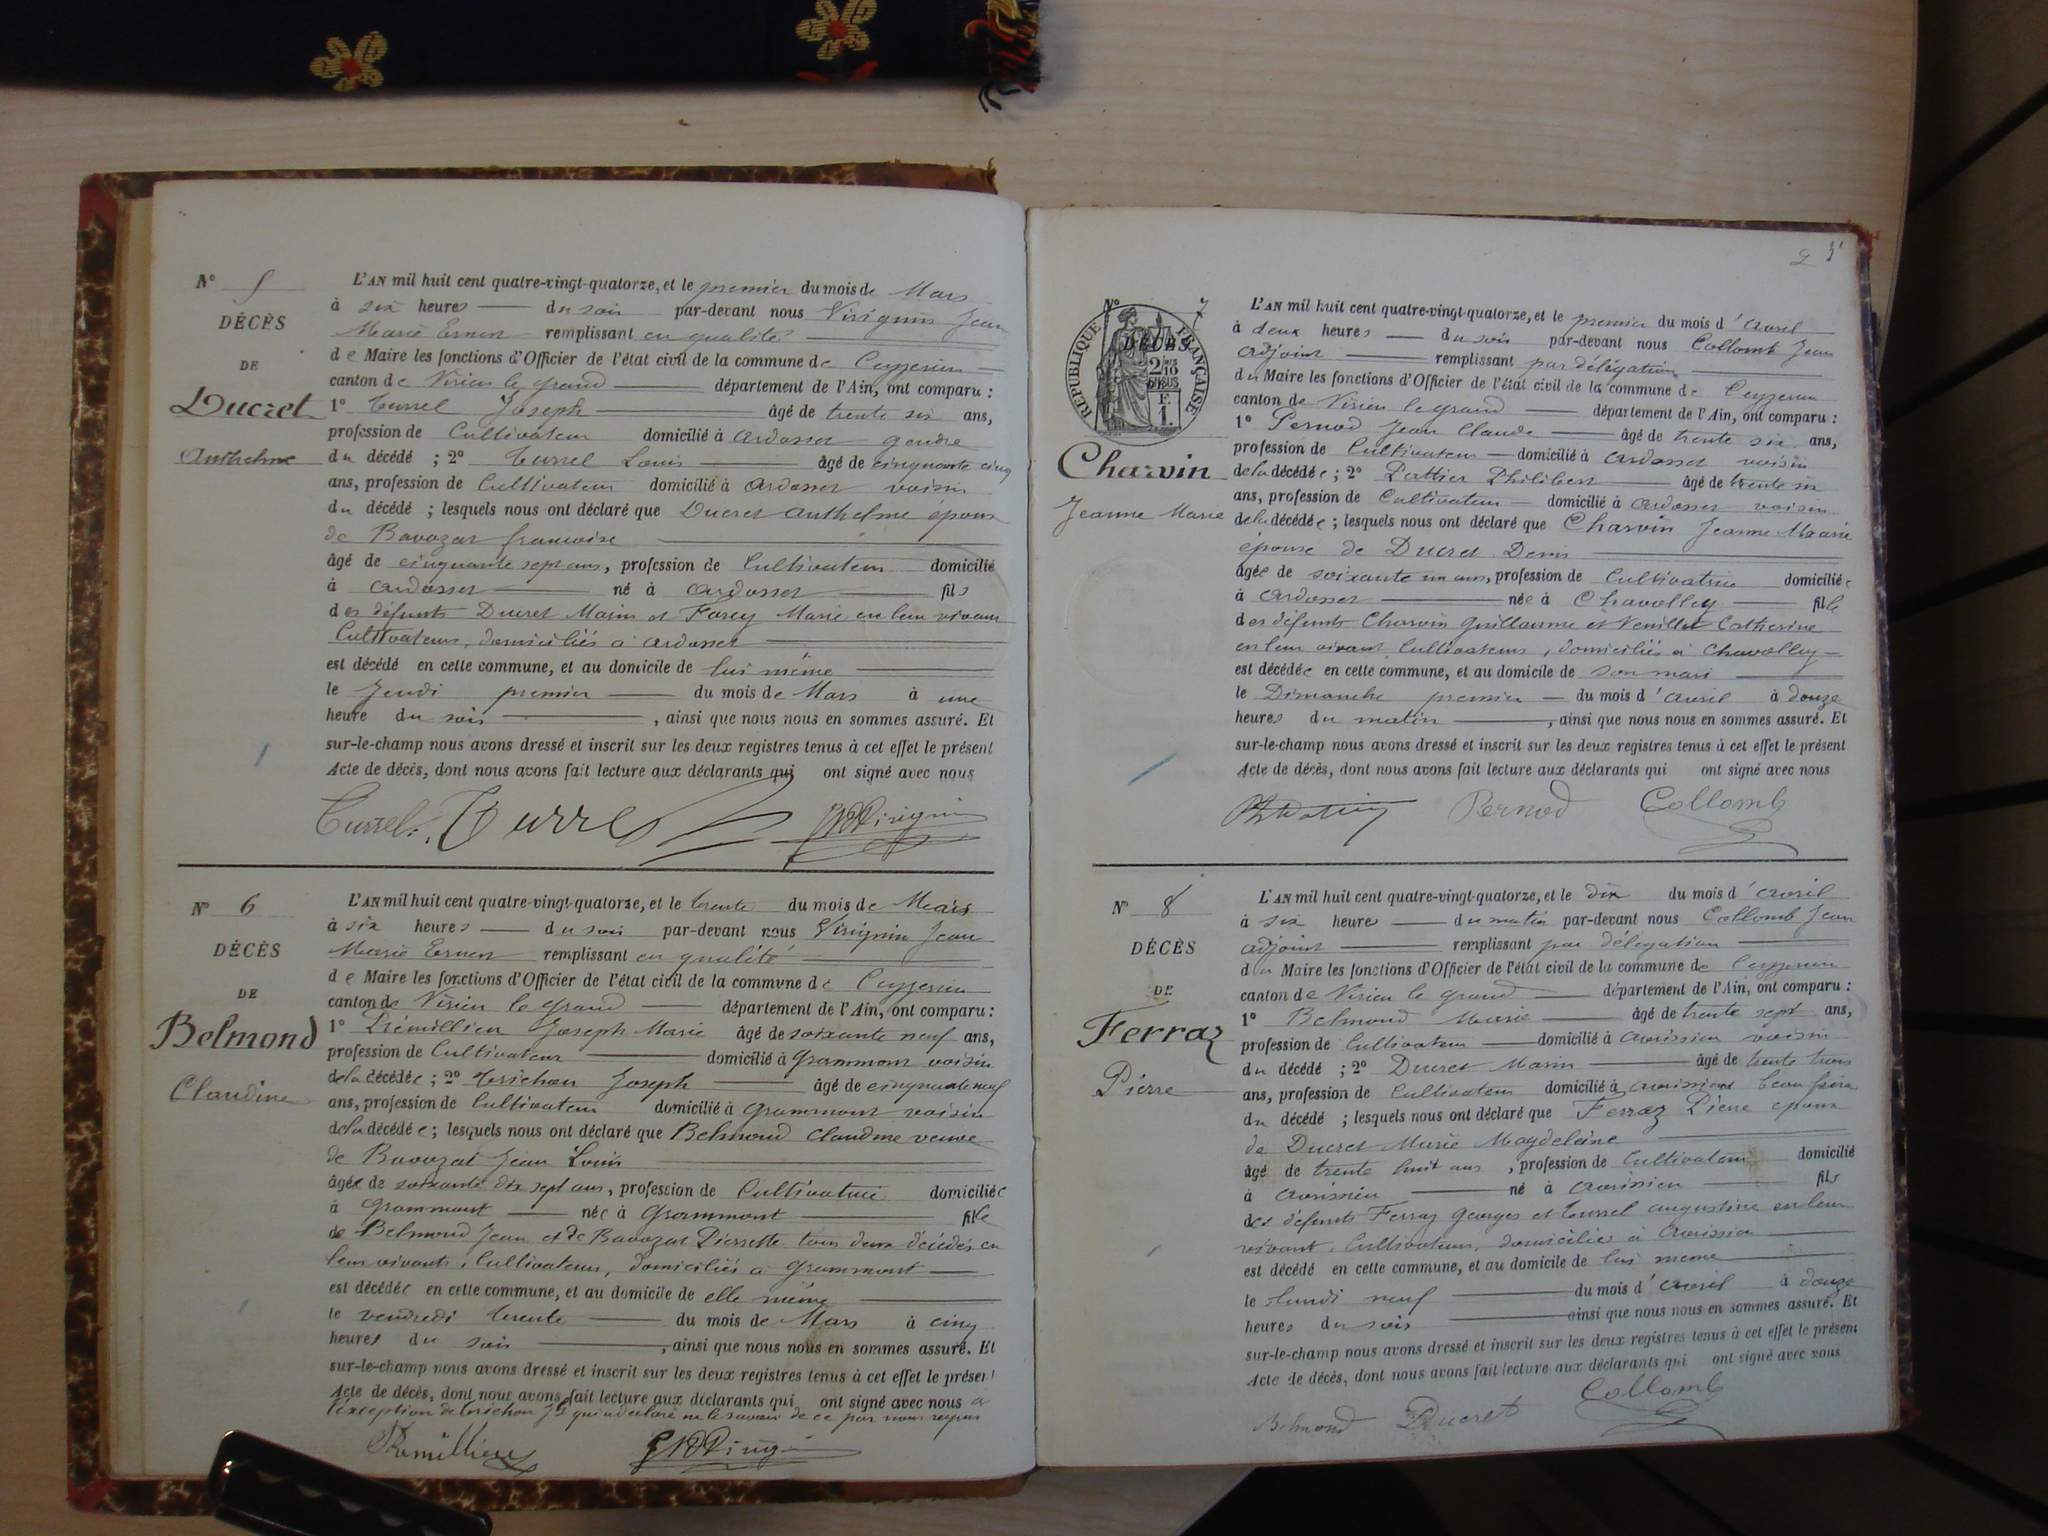 N° 5
DÉCÈS
DE
Ducret
Anthelme
L'AN mil huit cent quatre-vingt-quatorze, et le premier du mois de Mars
à six heures du soir par-devant nous Virignin Jean
Marie Ernest remplissant en qualité
de Maire les fonctions d'Officier de l'état civil de la commune de Ceyzerieu
canton de Virieu le grand département de l'Ain, ont comparu :
1° Turrel Joseph âgé de trente six ans,
profession de Cultivateur domicilié à Ardosset gendre
du décédé ; 2° Turrel Louis âgé de cinquante cinq
ans, profession de Cultivateur domicilié à Ardosset voisin
du décédé ; lesquels nous ont déclaré que Ducret Anthelme époux
de Bavozat françoise
âgé de cinquante sept ans, profession de Cultivateur domicilié
à Ardosset né à Ardosset fils
des défunts Ducret Marin et Forey Marie en leur vivant
Cultivateurs, domiciliés à Ardosset
est décédé en cette commune, et au domicile de lui même
le Jeudi premier du mois de Mars à une
heure du soir , ainsi que nous nous en sommes assuré. Et
sur-le-champ nous avons dressé et inscrit sur les deux registres tenus à cet effet le présent
Acte de décès, dont nous avons fait lecture aux déclarants qui ont signé avec nous
Turrel Turrel Virignin
N° 6
DÉCÈS
DE
Belmond
Claudine
L'AN mil huit cent quatre-vingt-quatorze, et le trente du mois de Mars
à six heures du soir par-devant nous Virignin Jean
Marie Ernest remplissant en qualité
de Maire les fonctions d'Officier de l'état civil de la commune de Ceyzerieu
canton de Virieu le grand département de l'Ain, ont comparu :
1° Trémillieu Joseph Marie âgé de soixante neuf ans,
profession de Cultivateur domicilié à Grammont voisin
de la décédée ; 2° Trichon Joseph âgé de cinquante neuf
ans, profession de Cultivateur domicilié à Grammont voisin
de la décédée ; lesquels nous ont déclaré que Belmond Claudine veuve
de Bavozat Jean Louis
âgée de soixante dix sept ans, profession de Cultivatrice domiciliée
à Grammont née à Grammont fille
de Belmond Jean et de Bavozat Pierrette tous deux décédés en
leur vivants, Cultivateurs, domiciliés à Grammont
est décédée en cette commune, et au domicile de elle même
le vendredi trente du mois de Mars à cinq
heures du soir , ainsi que nous nous en sommes assuré. Et
sur-le-champ nous avons dressé et inscrit sur les deux registres tenus à cet effet le présent
Acte de décès, dont nous avons fait lecture aux déclarants qui ont signé avec nous à
l'exception de Trichon Jh qui a déclaré ne le savoir de ce par nous requis
Trémillieu Virignin
2 3
N° 7
RÉPUBLIQUE FRANÇAISE
2/10 EN SUS
F. 1.
DÉCÈS
Charvin
Jeanne Marie
L'AN mil huit cent quatre-vingt-quatorze, et le premier du mois d'avril
à deux heures du soir par-devant nous Collomb Jean
adjoint remplissant par délégation
du Maire les fonctions d'Officier de l'état civil de la commune de Ceyzerieu
canton de Virieu le grand département de l'Ain, ont comparu :
1° Pernod Jean Claude âgé de trente six ans,
profession de Cultivateur domicilié à Ardosset voisin
de la décédée ; 2° Philibert âgé de trente six
ans, profession de Cultivateur domicilié à Ardosset voisin
de la décédée ; lesquels nous ont déclaré que Charvin Jeanne Marie
épouse de Ducret Denis
âgée de soixante un ans, profession de Cultivatrice domiciliée
à Ardosset née à Chavolley fille
des défunts Charvin Guillaume et Veuillet Catherine
en leur vivant Cultivateurs, domiciliés à Chavolley
est décédée en cette commune, et au domicile de son mari
le Dimanche premier du mois d'avril à douze
heures du matin , ainsi que nous nous en sommes assuré. Et
sur-le-champ nous avons dressé et inscrit sur les deux registres tenus à cet effet le présent
Acte de décès, dont nous avons fait lecture aux déclarants qui ont signé avec nous
Pernod Collomb
N° 8
DÉCÈS
DE
Ferraz
Pierre
L'AN mil huit cent quatre-vingt-quatorze, et le dix du mois d'avril
à six heures du matin par-devant nous Collomb Jean
adjoint remplissant par délégation
du Maire les fonctions d'Officier de l'état civil de la commune de Ceyzerieu
canton de Virieu le grand département de l'Ain, ont comparu :
1° Belmond Marie âgé de trente sept ans,
profession de Cultivateur domicilié à Avrissieu voisin
du décédé ; 2° Ducret Marin âgé de trente trois
ans, profession de Cultivateur domicilié à Avrissieu beau frère
du décédé ; lesquels nous ont déclaré que Ferraz Pierre époux
de Ducret Marie Magdeleine
âgé de trente huit ans , profession de Cultivateur domicilié
à Avrissieu né à Avrissieu fils
des défunts Ferraz Georges et Turrel Augustine en leur
vivant, Cultivateurs, domiciliés à Avrissieu
est décédé en cette commune, et au domicile de lui même
le lundi neuf du mois d'avril à douze
heures du soir ainsi que nous nous en sommes assuré. Et
sur-le-champ nous avons dressé et inscrit sur les deux registres tenus à cet effet le présent
Acte de décès, dont nous avons fait lecture aux déclarants qui ont signé avec nous
Belmond Ducret Collomb